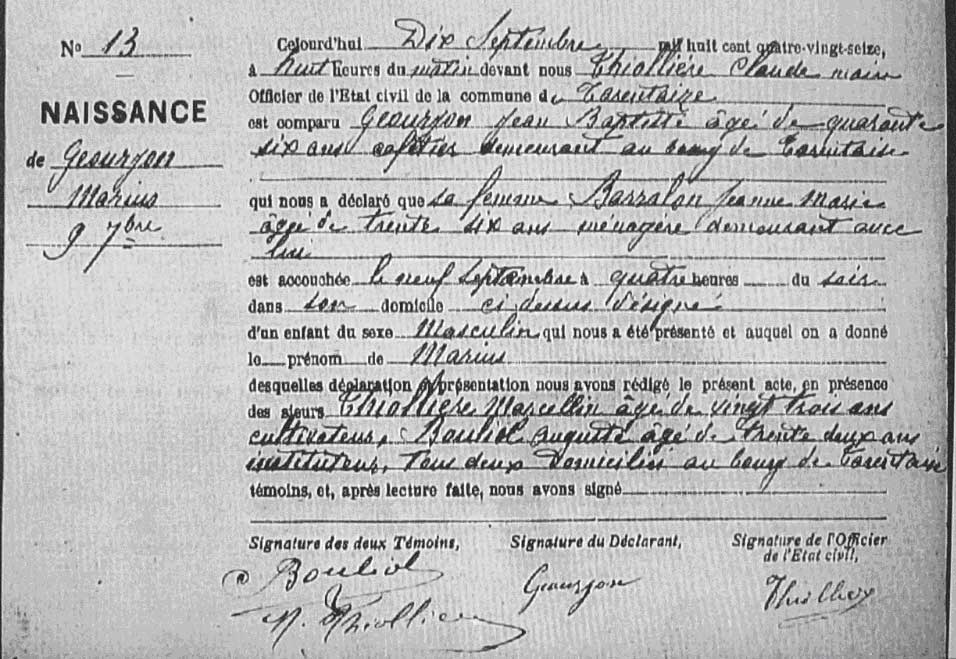 No 13
NAISSANCE
de Geourjon
Marius
9 7bre
Cejourd'hui Dix Septembre mil huit cent quatre-vingt-seize,
à huit heures du matin devant nous Thiollière Claude maire
Officier de l'Etat civil de la commune de Tarentaize
est comparu Geourjon Jean Baptiste âgé de quarante
six ans cafetier demeurant au bourg de Tarentaise
qui nous a déclaré que sa femme Barralon Jeanne Marie
âgé de trente six ans ménagère demeurant avec
lui
est accouchée le neuf Septembre à quatre heures du soir
dans son domicile ci dessus désigné
d'un enfant du sexe Masculin qui nous a été présenté et auquel on a donné
le prénom de Marius
desquelles déclaration et présentation nous avons rédigé le présent acte, en présence
des sieurs Thiollière Marcellin âgé de vingt trois ans
cultivateur, Bouliol Auguste âgé de trente deux ans
instituteur, tous deux domiciliés au bourg de Tarentaise
témoins, et, après lecture faite, nous avons signé
Signature des deux Témoins,
Signature du Déclarant,
Signature de l'Officier
de l'Etat civil,
Bouliol
Geourjon
M. Thiollière